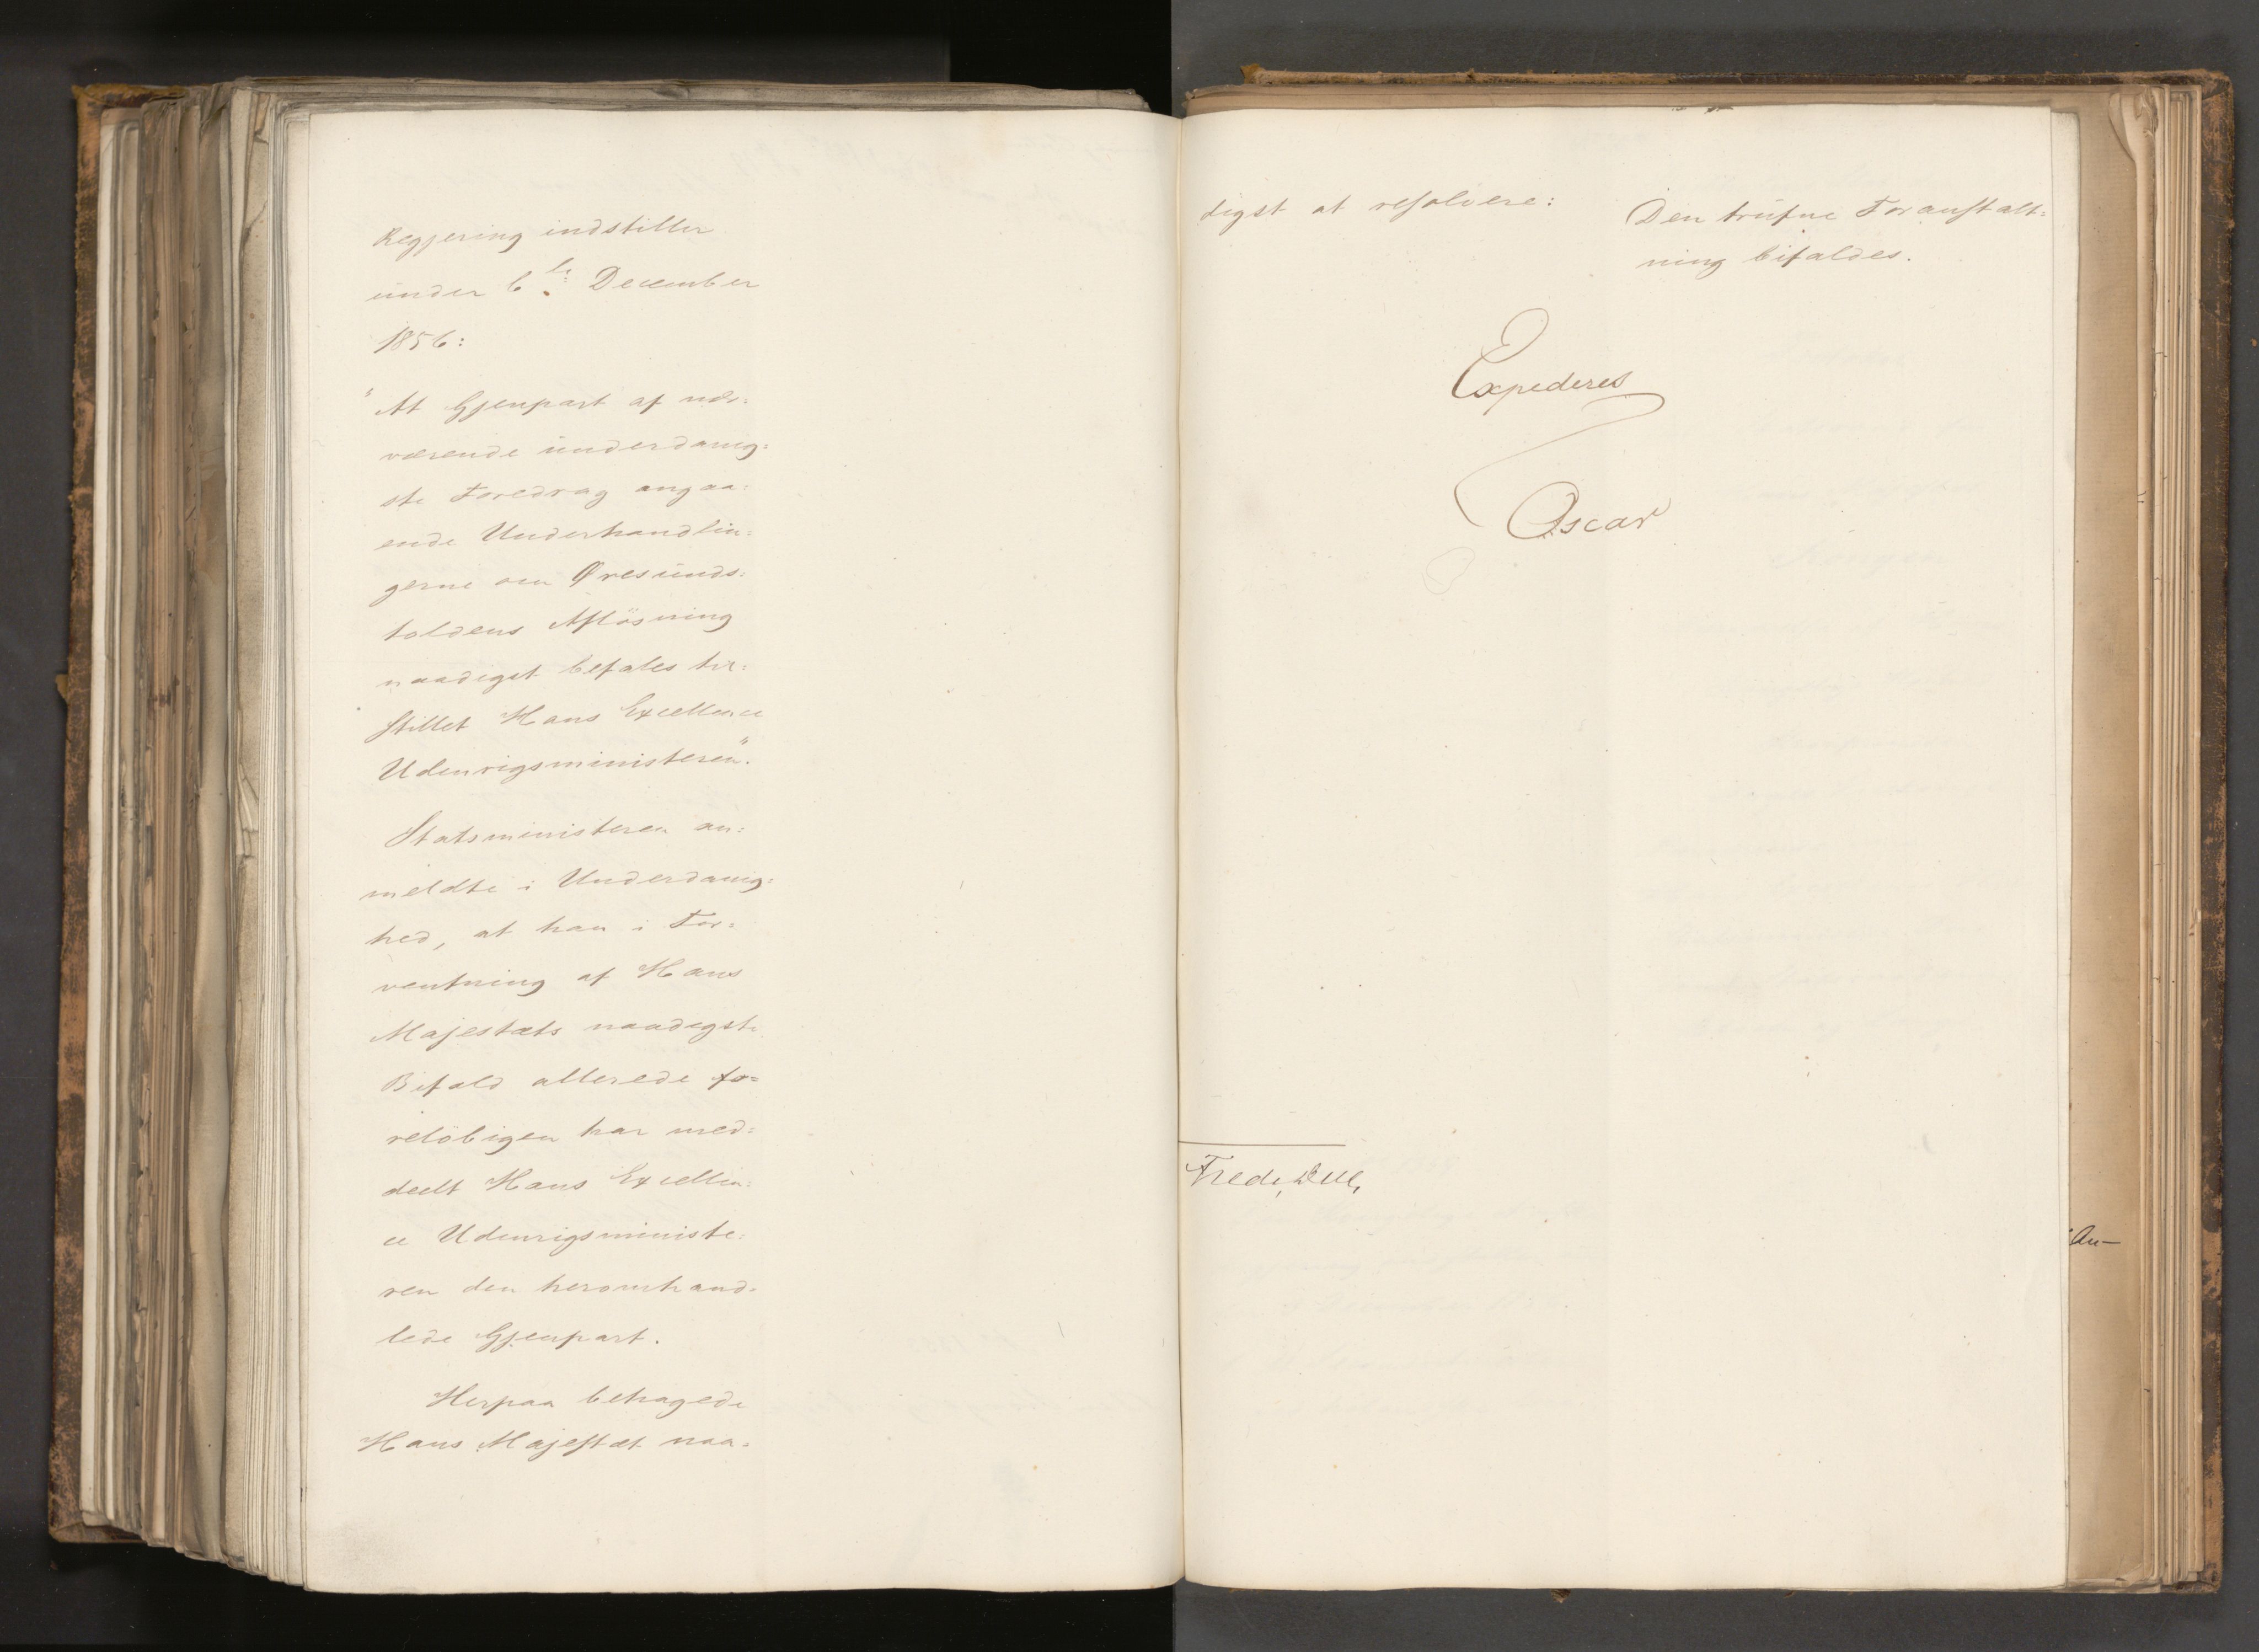 Regjering indstiller
under 6te December
1856:
"At Gjenpart af nær:
værende underdanig:
ste Foredrag angaa:
ende Underhandlin:
gerne om Øresunds:
toldens Aflösning
naadigst befales til:
stillet Hans Excellence
Udenrigsministeren".
Statsministeren an:
meldte i Underdanig:
hed, at han i For:
ventning af Hans
Majestæts naadigste
Bifald allerede fo=
relöbigen har med:
deelt Hans Excellen:
ce Udenrigsministe:
ren den heromhand:
lede Gjenpart.
Herpaa behagede
Hans Majestæt naa:
digst at resolvere:
Den trufne Foranstalt:
ning bifaldes.
Expederes
Oscar